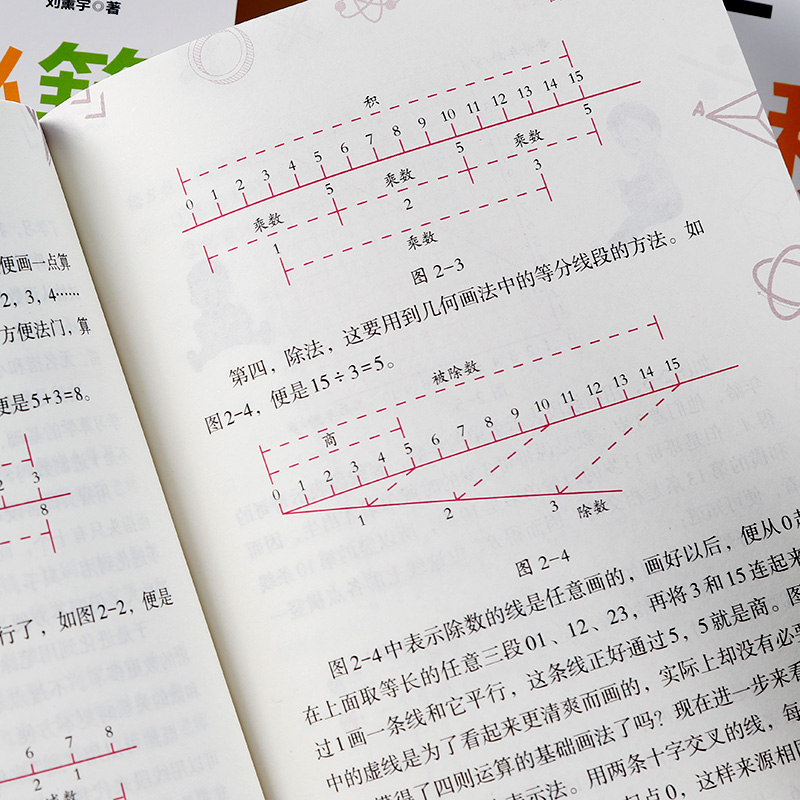 刘薰宇◎著
便画一点算
2，3，4……
方便法门，算
便是5+3=8。
2 3
8
行了，如图2-2，便是
6 7 8
2 1
积
0 1 2 3 4 5 6 7 8 9 10 11 12 13 14 15
乘数 5 乘数 5 乘数 5
1 2 3
乘数
图 2-3
第四，除法，这要用到几何画法中的等分线段的方法。如
图2-4，便是15÷3=5。
被除数
商
0 1 2 3 4 5 6 7 8 9 10 11 12 13 14 15
1 2 3 除数
图 2-4
图2-4中表示除数的线是任意画的，画好以后，便从0起
在上面取等长的任意三段01、12、23，再将3和15连起来
过1画一条线和它平行，这条线正好通过5，5就是商。图
中的虚线是为了看起来更清爽而画的，实际上却没有必要
懂得了四则运算的基础画法了吗？现在进一步来看
表示法。用两条十字交叉的线，每
起点0，这样来源相同
A